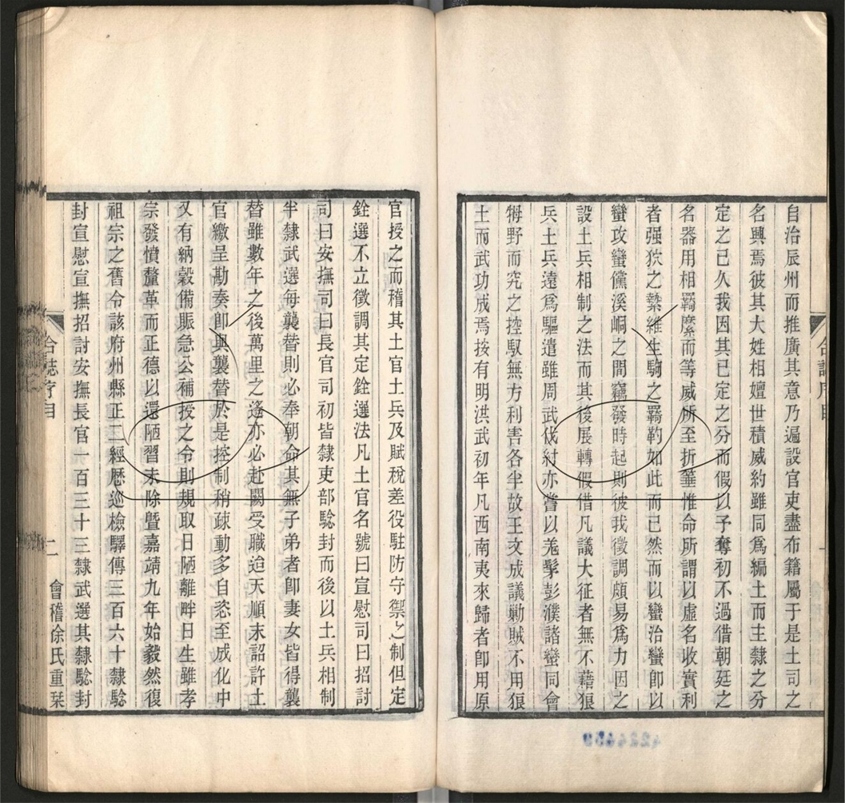 自治辰州而推廣其意乃遍設官吏盡布籍屬于是土司之
名興焉彼其大姓相嬗世積威約雖同為編土而主隸之分
定之已久我因其已定之分而假以予奪初不過借朝廷之
名器用相羈縻而等威所至折箠惟命所謂以虛名收實利
者强狄之縶維生駒之羇靮如此而已然而以蠻治蠻即以
蠻攻蠻儻溪峒之間竊發時起則彼我徵調頗易為力因之
設土兵相制之法而其後展轉假借凡議大征者無不藉狼
兵土兵遠為驅遣雖周武伐紂亦嘗以羗髳彭濮諸蠻同會
牳野而究之控馭無方利害各半故王文成議勦賊不用狼
土而武功成焉按有明洪武初年凡西南夷來歸者即用原
官授之而稽其土官土兵及賦稅差役駐防守禦之制但定
銓選不立徵調其定銓選法凡土官名號曰宣慰司曰招討
司曰安撫司曰長官司初皆隸吏部騐封而後以土兵相制
半隸武選每襲替則必奉朝命其無子弟者即妻女皆得襲
替雖數年之後萬里之遙亦必赴闕受職迨天順末詔許土
官繳呈勘奏即與襲替於是控制稍疎動多自恣至成化中
又有納穀備賑急公補授之令則規取日陋離畔日生雖孝
宗發憤釐革而正德以還陋習未除暨嘉靖九年始毅然復
祖宗之舊令該府州縣正二經歷巡檢驛傳三百六十隸騐
封宣慰宣撫招討安撫長官一百三十三隸武選其隸騐封
合誌序目
二
會稽徐氏重栞
4224459